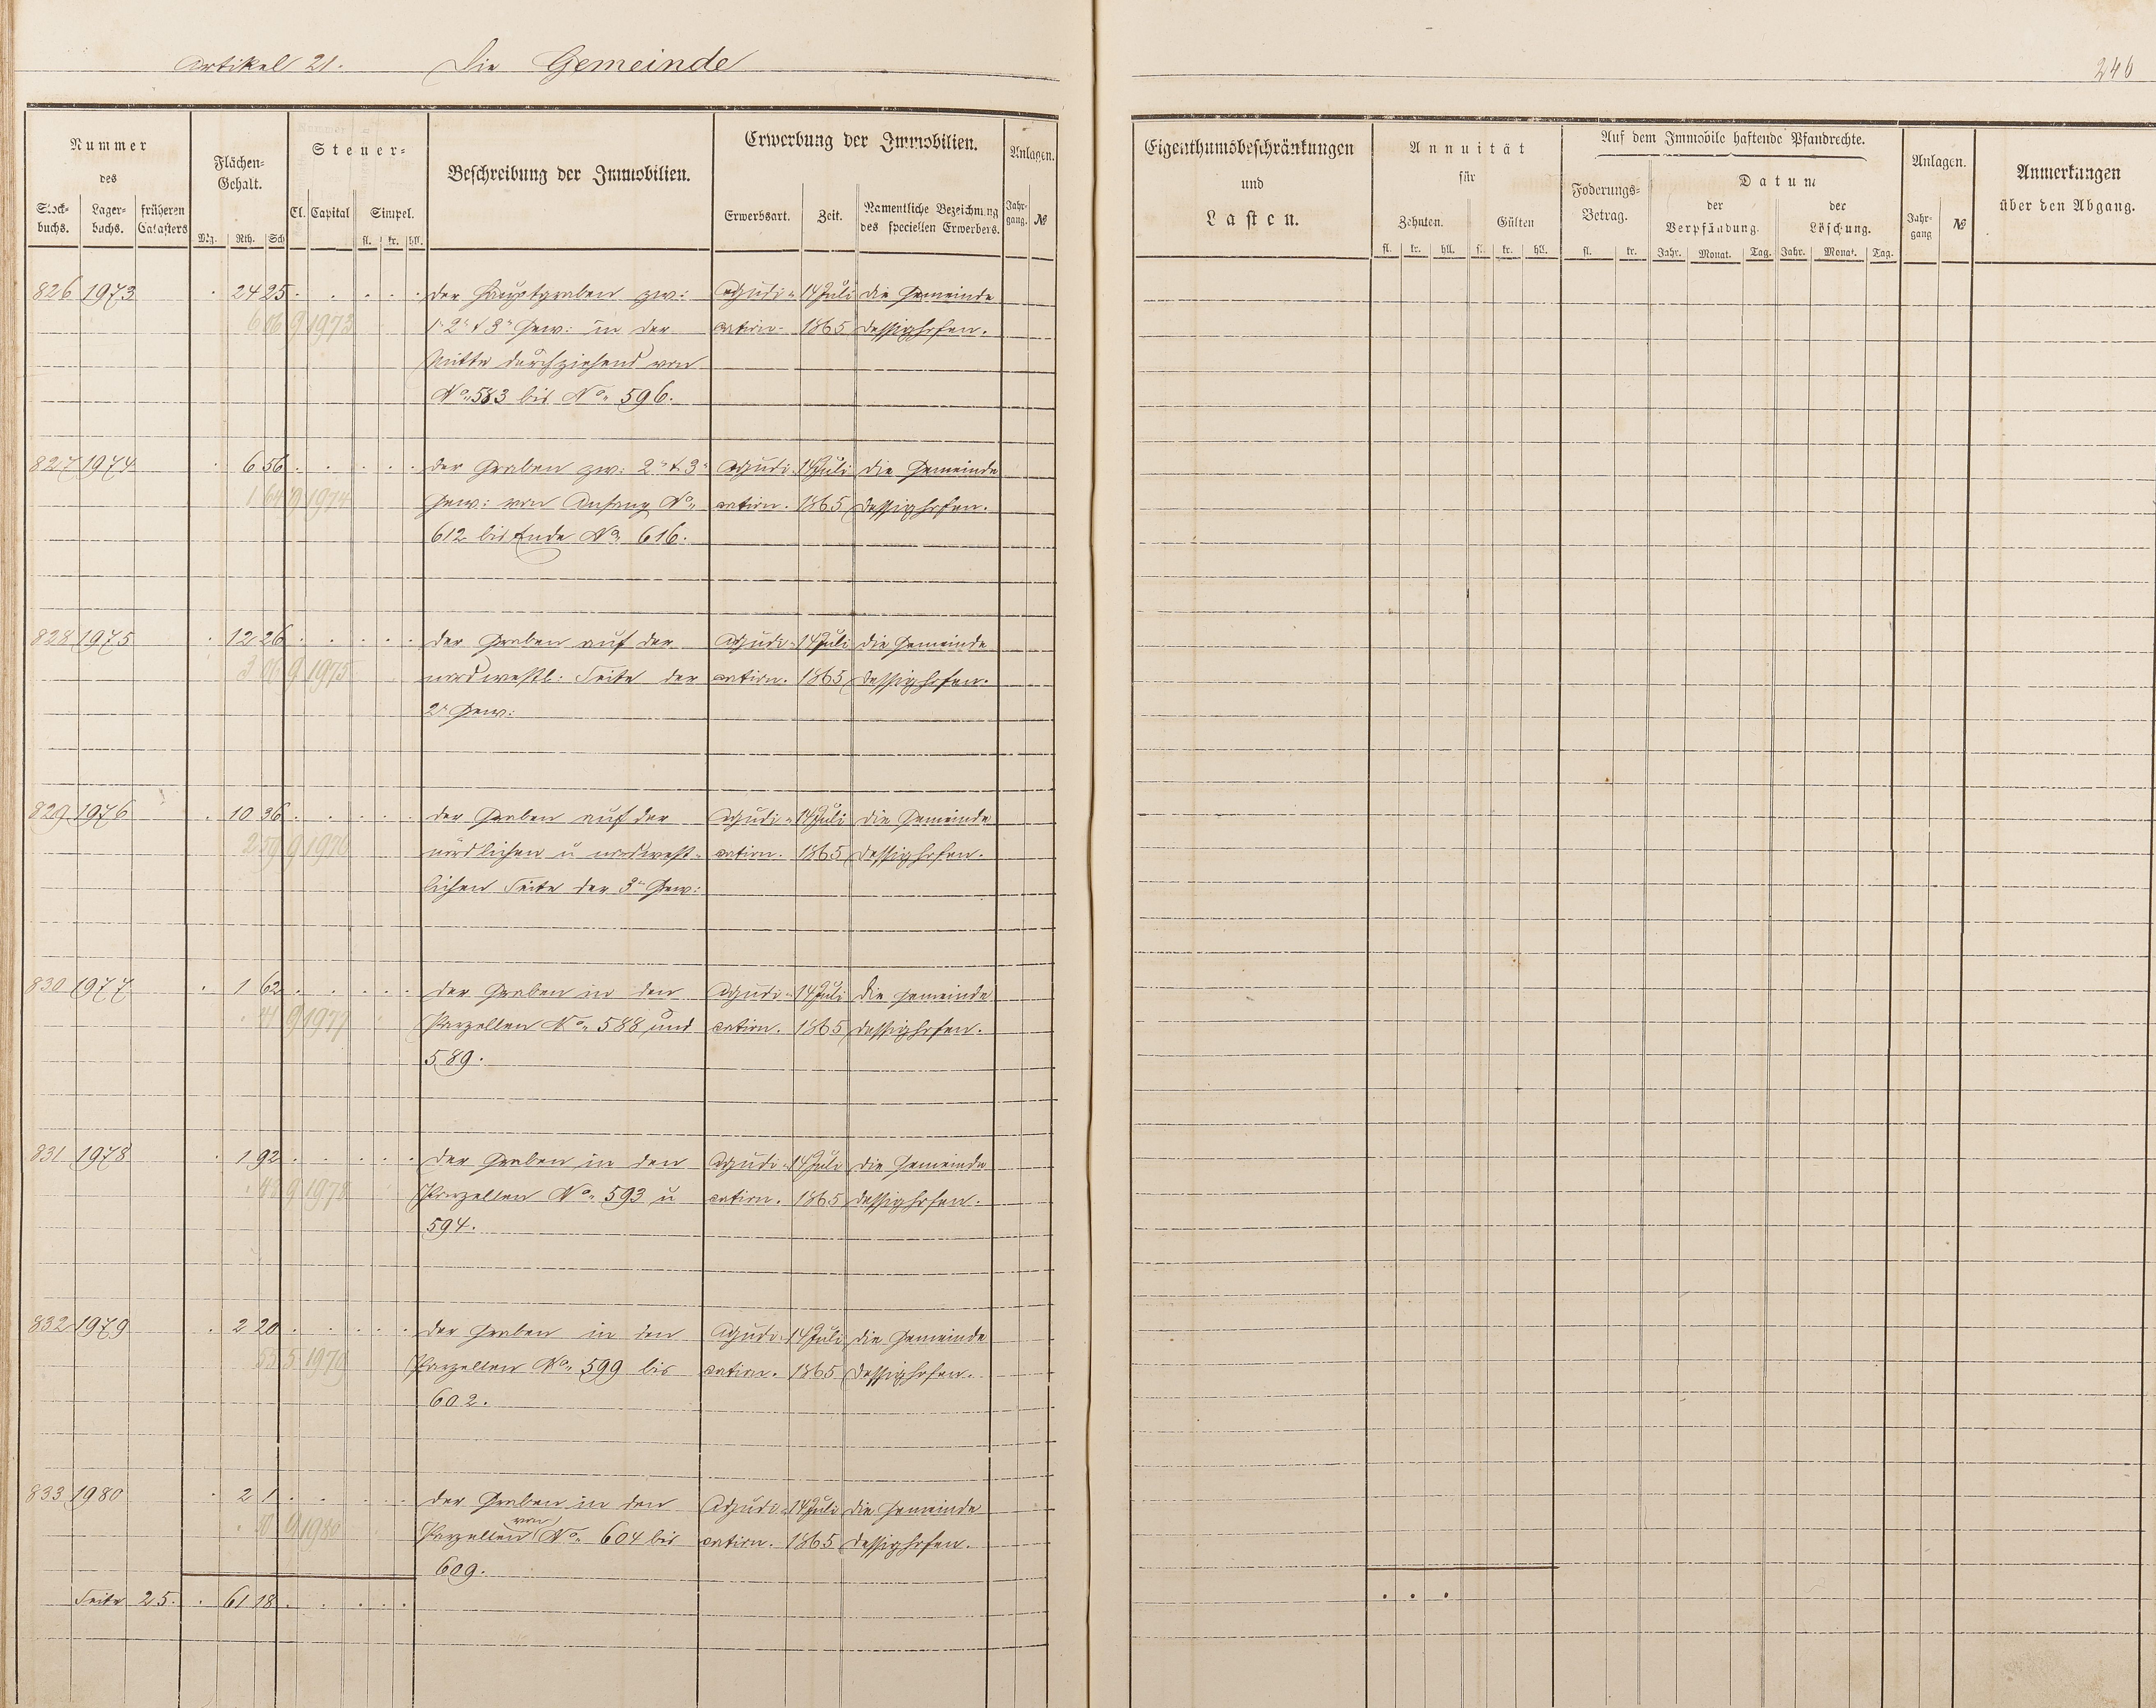 Artikel 21. Die Gemeinde
246
Nummer des
Stock-buchs. Lager-buchs. früheren Catasters
Flächen-Gehalt.
Mg. Rth. Sch
Steuer-
Cl. Capital Simpel.
fl. kr. hll.
Beschreibung der Immobilien.
Erwerbung der Immobilien.
Erwerbsart. Zeit. Namentliche Bezeichnung des speciellen Erwerbers.
Anlagen.
Jahr-gang. №
Eigenthumsbeschränkungen
und
Lasten.
Annuität
für
Zehnten. Gülten
fl. kr. hll. fl. kr. hll.
Auf dem Immobile haftende Pfandrechte.
Foderungs-Betrag.
fl. kr.
Datum
der Verpfändung. der Löschung.
Jahr. Monat. Tag. Jahr. Monat. Tag.
Anlagen.
Jahr-gang №
Anmerkungen
über den Abgang.
826 1973 . 24 25 . . . . . der Hauptgraben zw: Adjudi- 14 Juli die Gemeinde
6 06 9 1973 1r 2r & 3r Gew: in der cation. 1865 Dessighofen.
Mitte durchziehend von
No. 583 bis No. 596.
827 1974 . 6 56 . . . . . der Graben zw: 2r & 3r Adjudi- 14 Juli die Gemeinde
1 64 9 1974 Gew: von Anfang No. cation. 1865 Dessighofen.
612 bis Ende No. 616.
828 1975 . 12 26 . . . . . der Graben auf der Adjudi- 14 Juli die Gemeinde
3 06 9 1975 nordwestl: Seite der cation. 1865 Dessighofen.
2r Gew:
829 1976 . 10 36 . . . . . der Graben auf der Adjudi- 14 Juli die Gemeinde
2 59 9 1976 nördlichen u nordwest- cation. 1865 Dessighofen.
lichen Seite der 3r Gew:
830 1977 . 1 62 . . . . . der Graben in den Adjudi- 14 Juli die Gemeinde
. 41 9 1977 Parzellen No. 588 und cation. 1865 Dessighofen.
589.
831 1978 . 1 92 . . . . . der Graben in den Adjudi- 14 Juli die Gemeinde
. 48 9 1978 Parzellen No. 593 u cation. 1865 Dessighofen.
594.
832 1979 . 2 20 . . . . . der Graben in den Adjudi- 14 Juli die Gemeinde
55 5 1979 Parzellen No. 599 bis cation. 1865 Dessighofen.
602.
833 1980 . 2 1 . . . . . der Graben in den Adjudi- 14 Juli die Gemeinde
9 1980 Parzellen von No. 604 bis cation. 1865 Dessighofen.
609.
Seite 25. . 61 18 . . . . .
. . .